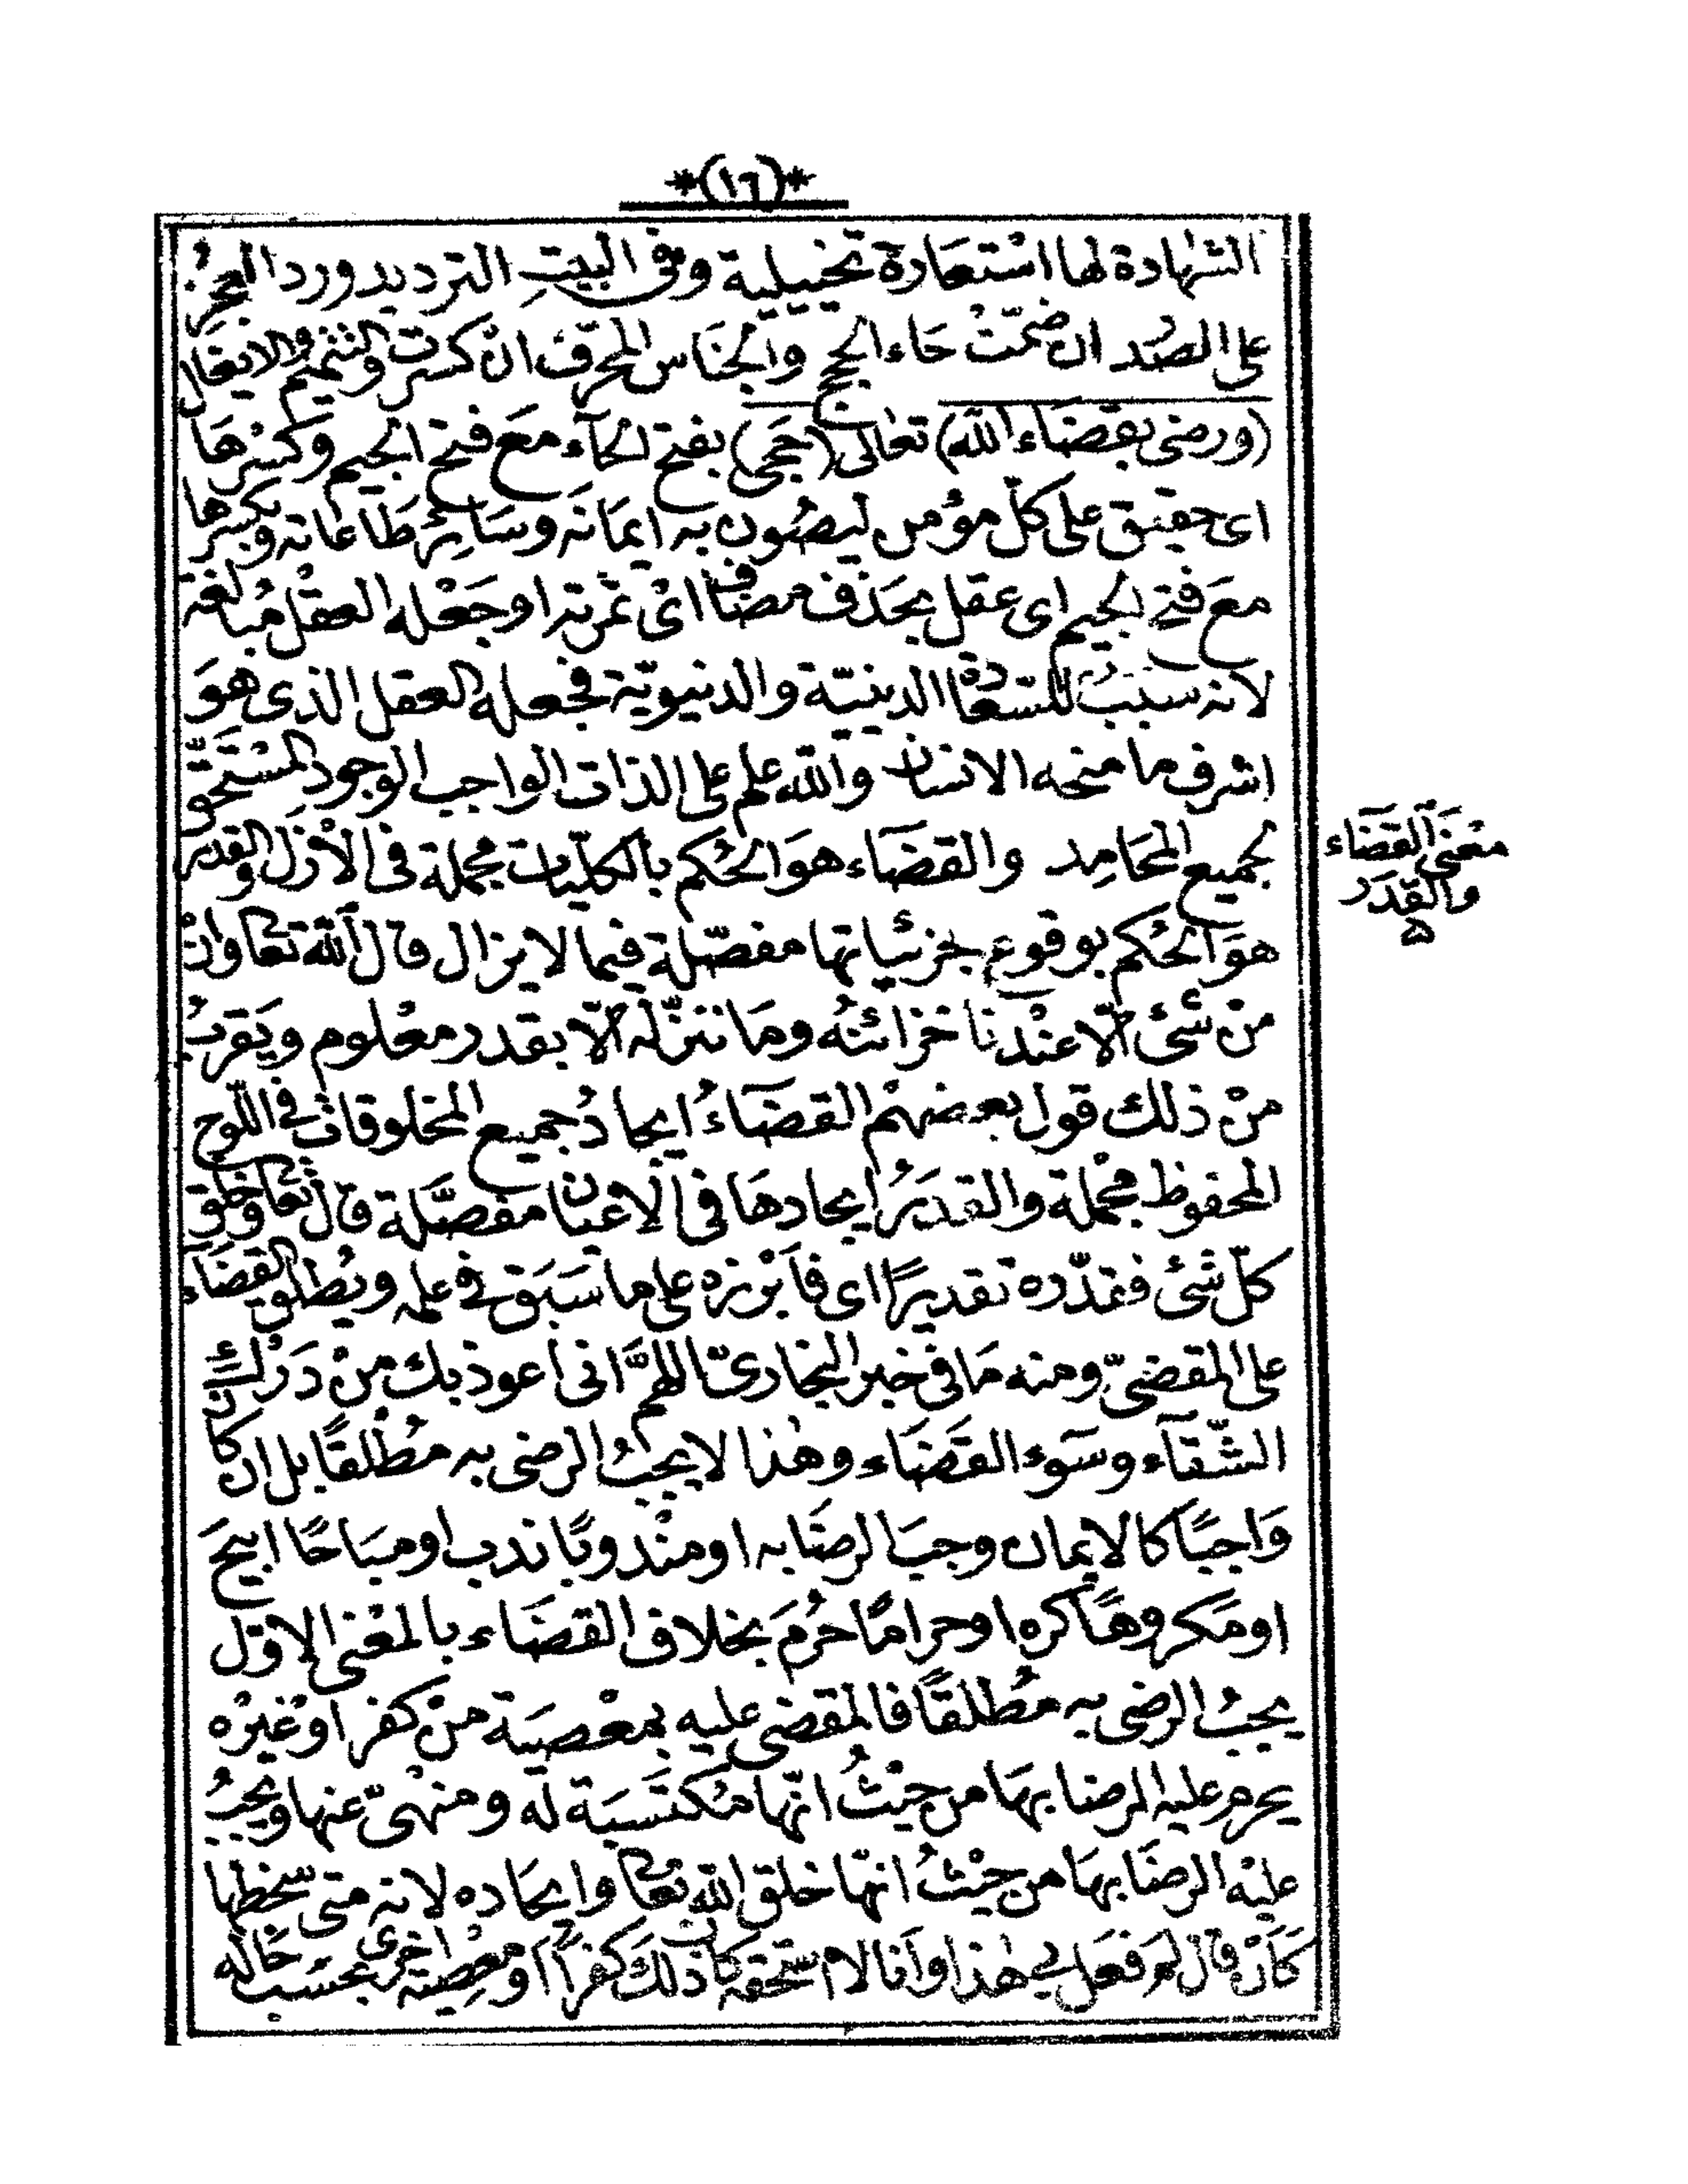 *(١٦)*
الشهادة لها اسْتعَارة تخييلية وفى البيتِ الترديد ورد العجزُ
على الصَدر ان ضمّتْ حَاء الحج وَالجنَاس المحرّف انْ كسرت والتتميم والايغال
(ورضى بقضَاء الله) تعالى (حَجى) بفتح الحآء معَ فتح الجيم وكسْرهَا
اى حقيق على كلّ مؤمن ليصُون به ايمَانه وسَائِرَ طَاعَاته وبكسرها
معَ فتح الجيم اى عقل بحَذف مضاف اىْ ثمرته اوجَعْله العقْل مُبالغة
لانه سبَبٌ للسّعادة الدينيّة والدنيويّة فجعله العقل الذى هوَ
اشرف ما منحه الانسان وَالله علم على الذات الواجب الوجودِ المسْتَحقّ
لجميع المحَامِد والقضَاء هوَ الحُكم بالكليّات مجملة فى الْازَل والقدر
معْنَى القضَاء
والقَدَر
هوَ الحُكم بوقوع جزئياتها مفصّلة فيما لايزال قال الله تعَا وانْ
منْ شئ الّا عنْدنا خزائنُه ومَا ننزّله الّا بقدر معْلوم ويَقرب
منْ ذلك قول بعضهْم القضَاءُ ايجادُ جميع المخلوقات في اللّوح
المحفوظ مجْملة والقدَرُ ايجادهَا فى الْاعيَان مفصَّلة قال تعَا وخلق
كلّ شئ فقدّره تقديرًا اى فاَبْرزه على ما سَبَق في علمه ويُطلق القضَاء
على المقضىّ ومنه مَا فى خبر البخارىّ اللهمَّ انى اعوذ بك منْ دَرْك
الشّقآء وسَوء القَضَاء وهٰذا لا يجبُ الرضى به مطْلقًا بل ان كان
وَاجبًا كالايمان وجبَ الرضَا به اومنْدوبًا ندب اومبَاحًا ابيحَ
اومَكروهًا كره اوحرامًا حَرُمَ بخلاف القضَاء بالمعْنى الاوّل
يجبُ الرضى به مُطلقًا فالمقضى عليه بمعْصيَة منْ كفر اوْغيْرْه
يحرم عليه الرضا بهَا من حيْثُ انّها مُكتَسبَة له ومنْهىّ عنها ويجبُ
عليْه الرضَا بهَا من حيْثُ انّها خلق الله تعَا وايجَاده لانه متى سَخطها
كَاَنْ قال لم فعَل بي هٰذا وَانا لا استحقّه كان ذلكَ كفرًا اومعْصِية اخرى بحسَب حَاله